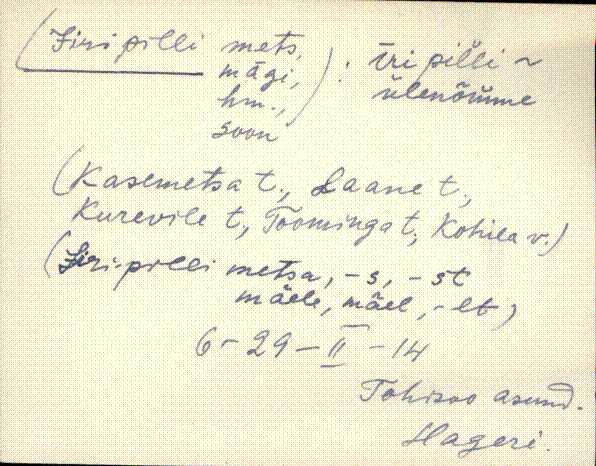 (Jiri pilli mets,
mägi,
hm.,
soon) : iri pilli ~
ülenõmme
(Kasemetsa t., Laane t.,
Kurevile t., Toominga t., Kohila v.)
(Jiri-pilli metsa, -s, -st
mäele, mäel, -lt)
6 - 29 - II - 14
Tohisoo asund.
Hageri.